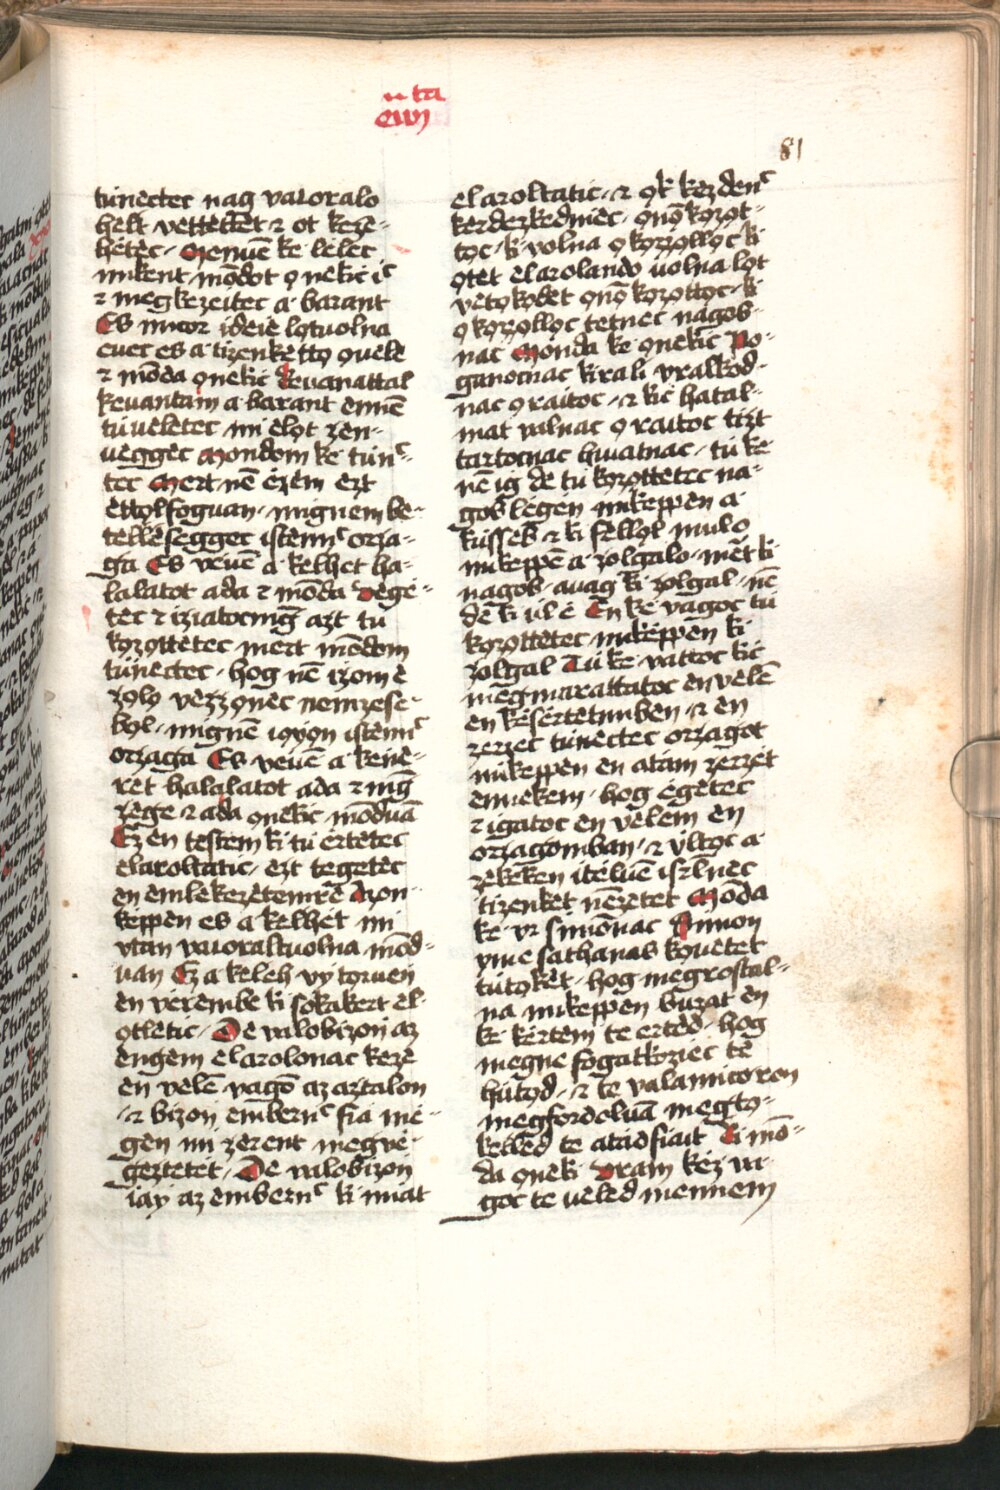 81
tūnectec nag vaċoralo
helt vėttetēt ⁊ ot keze-
hetėc · Menuē ke lelec
mikent mōdot ọnekic ic̄
⁊ megkezeitec a· barant
Es micor ideie lọtuolna
euec es a· tizenkėttọ ọuele
⁊ mōda ọnekic keuanattal
keuantam a· barant ėnnē
tū ueletec · mi elọt zen-
ueggec Mondom ke tūn̄c
tec Mert nē ezem ezt
ėttọl foguan · mignem be-
tellėsegget istenn̄c orza-
ga Es veuē a· kelhet ha-
lalatot ada ⁊ mōda Vege-
tec ⁊ iziatocmḡ azt tū
kọzọttetec · mert mōdom
tūnectec · hog nē izom e
zọlọ vezzọnec nemzese-
bọl · mignē iọiọn istenn̄c
orzaga Es veuē a· kene-
ret halalatot ada ⁊ mḡ
zege ⁊ ada ọnekic · mōduā
Ez en testem ki tū ertetec
elaroltatic · ezt tegetec
en emlekezetemrē Azon-
keppen es a· kelhet mi
vtan vaċoraltuolna · mōd-
uan Ez a· keleh vy toruen
en verembe ki sokakert el-
ọtletic · De valobizon az
engem elarolonac keze
en velē vagō az aztalon
⁊ bizon embern̄c fia me-
gen mi zerent megve-
geztetet · De valobizon
iay az embern̄c ki miat
elaroltatic · ⁊ ọk kezden̄c
kerdezkedniec · ọnō kọzọt-
tọc · ki volna ọ kọzzọllọc ki
ọtet elarolando uolna Lọt
vėtọkọdet ọnō kọzọttọc · ki
ọ kọzọllọc tetnec nagob-
nac Monda ke ọnekic Po-
ganocnac kirali vralkod-
nac ọ raitoc · ⁊ kic hatal-
mat valnac ọ raitoc tizt
tartocnac hiuatnac · tū ke
nē ig de tū kọzọttetec na-
gob legen mikeppen a·
kūsseb ⁊ ki fellọl mulo
mikeppē a· zolgalo · mēt ki
nagob · auag ki zolgal · nē
dē ki ūl e En ke vagoc tū
kọzọttetec · mikeppēn ki
zolgal Tū ke · vattoc kic
mēgmarattatoc en velē
en kesertetimben · ⁊ en
zerzec tūnectec orzagot
mikeppen en atam zerzet
ennekem · hog egetec
⁊ igatoc en velem en
orzagomban · ⁊ ūltọc a·
zėkėken iteluen isrl̄nec
tizenket nēzetet Mōda
ke vr simōnac Simon
yme sathanas kọuetet
tūtọkėt · hog megrostal-
na mikeppen buzat en
ke kertem te erted · hog
megne fogatkoziec te
hūtọd · ⁊ te valamicoron
megfordoluā megtọ-
kelled te atadfiait Ki mō-
da ọneki Vram kez va-
goc te ueled mennem